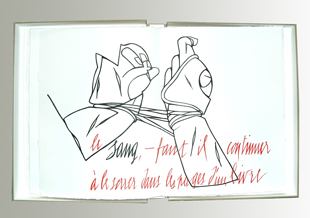 le sang, – faut-il continuer
à le serrer dans les pages d'un livre